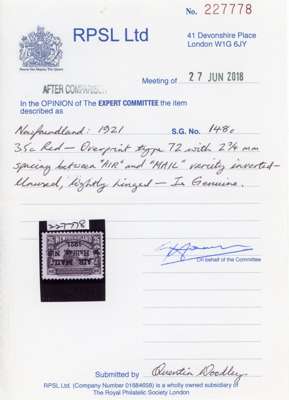 No. 227778
RPSL Ltd
41 Devonshire Place
London W1G 6JY
Meeting of 27 JUN 2018
AFTER COMPARISON
In the OPINION of The EXPERT COMMITTEE the item
described as
Newfoundland: 1921 S.G. No. 148c
35c Red - Overprint type 72 with 2¾ mm
spacing between "AIR" and "MAIL" variety inverted-
Unused, lightly hinged - Is Genuine.
227778
NEWFOUNDLAND
AIR MAIL
1921
On behalf of the Committee
Submitted by Quentin
RPSL Ltd. (Company Number 01684658) is a wholly owned subsidiary of
The Royal Philatelic Society London